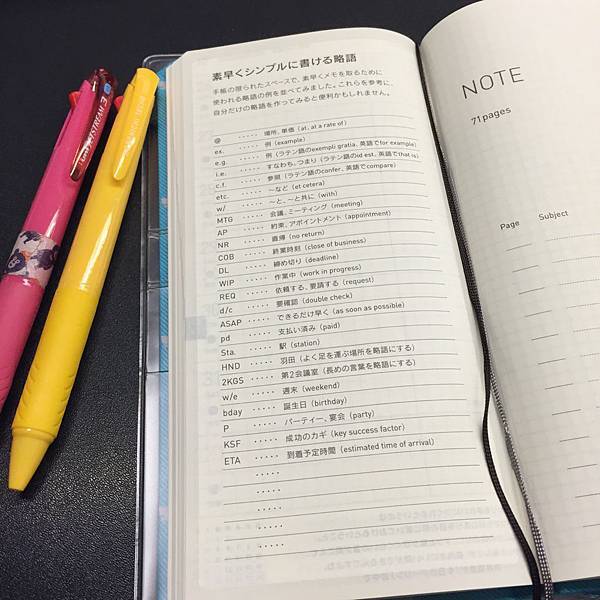 JETSTREAM 3
素早くシンプルに書ける略語
手帳の限られたスペースで、素早くメモを取るために
使われる略語の例を並べてみました。これらを参考に、
自分だけの略語を作ってみると便利かもしれません。
@ ····· 場所、単価（at, at a rate of）
ex. ····· 例（example）
e.g. ····· 例（ラテン語のexempli gratia, 英語でfor example）
i.e. ····· すなわち、つまり（ラテン語のid est, 英語でthat is）
c.f. ····· 参照（ラテン語のconfer, 英語でcompare）
etc. ····· 〜など（et cetera）
w/ ····· 〜と、〜と共に（with）
MTG ····· 会議、ミーティング（meeting）
AP ····· 約束、アポイントメント（appointment）
NR ····· 直帰（no return）
COB ····· 終業時刻（close of business）
DL ····· 締め切り（deadline）
WIP ····· 作業中（work in progress）
REQ ····· 依頼する、要請する（request）
d/c ····· 要確認（double check）
ASAP ····· できるだけ早く（as soon as possible）
pd ····· 支払い済み（paid）
Sta. ····· 駅（station）
HND ····· 羽田（よく足を運ぶ場所を略語にする）
2KGS ····· 第2会議室（長めの言葉を略語にする）
w/e ····· 週末（weekend）
bday ····· 誕生日（birthday）
P ····· パーティー、宴会（party）
KSF ····· 成功のカギ（key success factor）
ETA ····· 到着予定時間（estimated time of arrival）
·····
·····
·····
·····
·····
NOTE
71pages
Page Subject